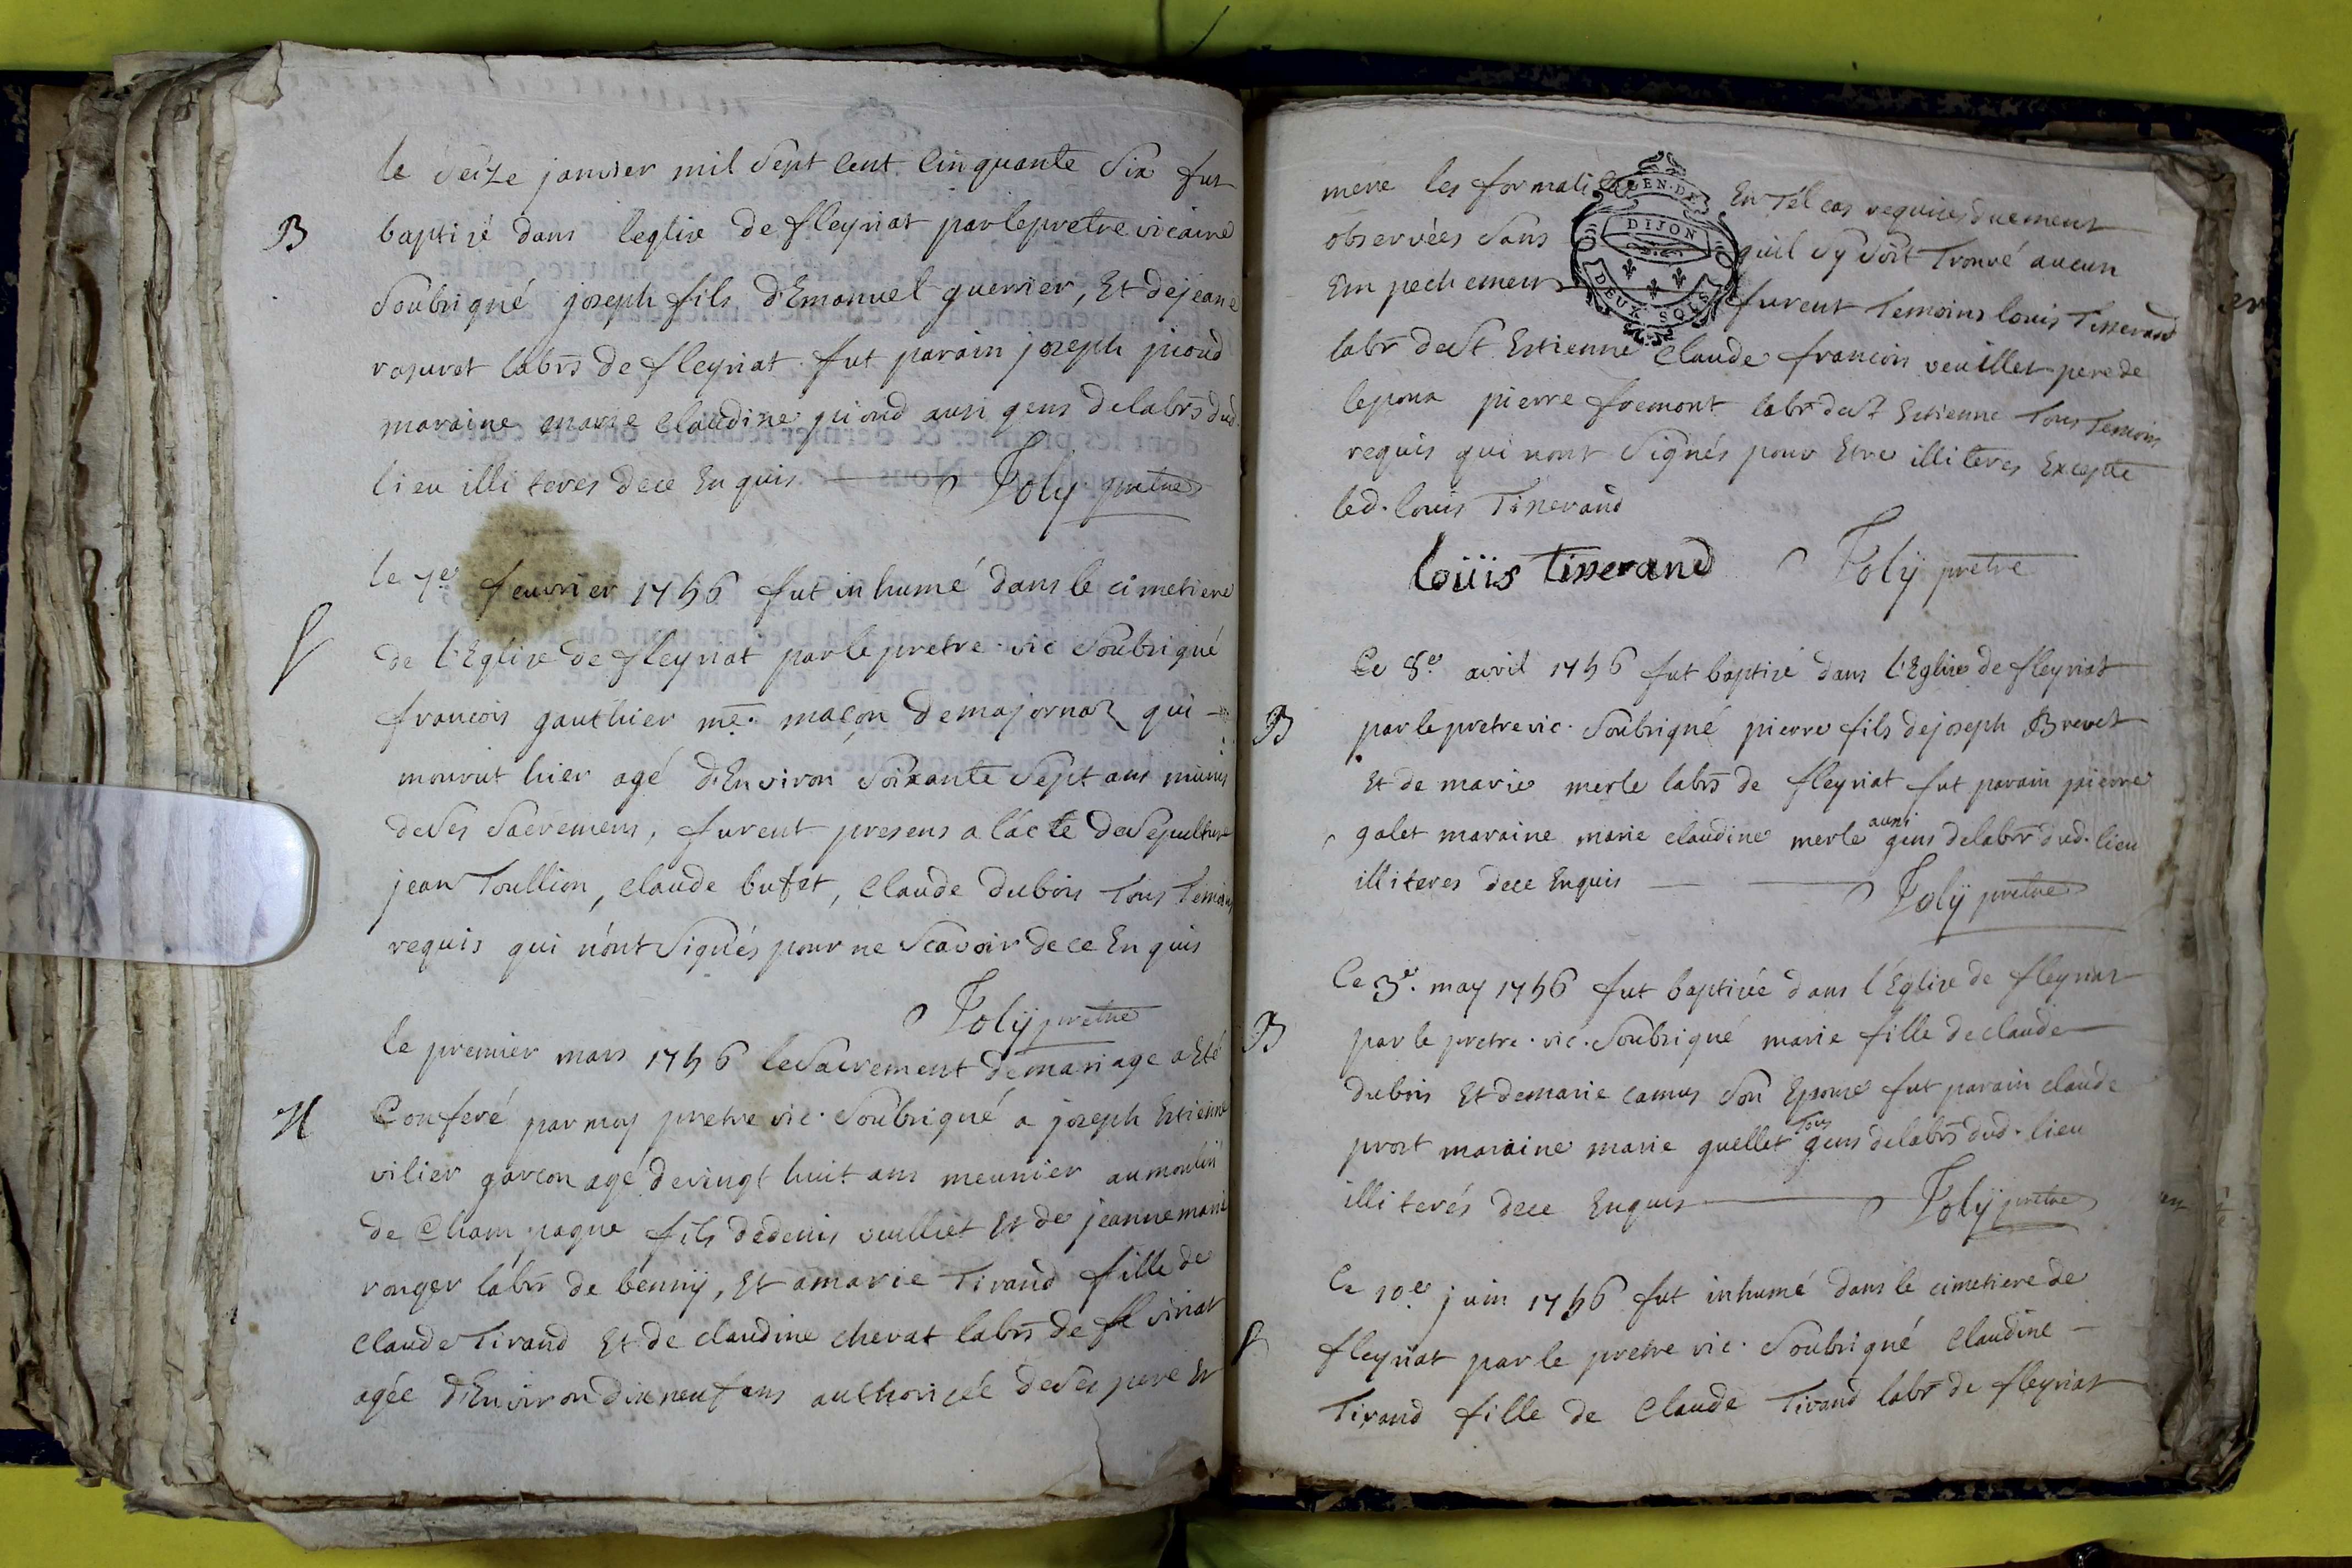 le seize janvier mil sept cent cinquante six fut
B baptisé dans leglise de fleyriat parlepretre vicaire
soubsigné joseph fils d'Emanuel guerrier, Et dejeane
rasurat labrs de fleyriat fut parain joseph piond
maraine marie claudine piond aussi gens delabrs dud
lieu illiteres dece Enquis Joly pretre
le 7e feuvrier 1756 fut inhumé dans le cimetiere
S de l'Eglise de fleyriat parle pretre vic soubsigné
francois gauthier me. maçon demajornas qui
mourut hier agé d'Environ soixante sept ans munis
deses sacremens, furent presens a lacte desepulture
jean Toullion, claude bufet, claude dubois Tous Temoins
requis qui n'ont signés pour ne scavoir dece Enquis
Joly pretre
le premier mars 1756 lesacrement demariage a Eté
M Conferé parmoy pretre vic. soubsigné a joseph Estienne
vilier garcon agé devingt huit ans meunier aumoulin
de Champagne fils dedenis veulliet Et de jeanne marie
ronger labrs de bénny, Et amarie Tirand fille de
claude Tirand Et de claudine chevat labrs de fl viriat
agée d'Environ dixneuf ans authorisée deses pere Et
GEN. DE
DIJON
DEUX SOLS
mere les formali En Tel cas requises duement
observées sans quil sy soit Trouvé aucun
Empechement furent Temoins louis Tisserand
labr dest Estienne claude francois veuillet pere de
lepoux pierre fremont labr dest Estienne Tous Temoins
requis qui nont signés pour Etre illiteres Excepté
led. louis Tisserand
loüis tisserand Joly pretre
Le 8e avril 1756 fut baptisé dans l'Eglise de fleyriat
B parlepretre vic. soubsigné pierre fils dejoseph Brevet
Et de marie merle labrs de fleyriat fut parain pierre
galet maraine marie claudine merle aussi gens delabr dud. lieu
illiteres dece Enquis Joly pretre
Le 3e. may 1756 fut baptisée dans l'Eglise de fleyriat
B par le pretre. vic. soubsigné marie fille declaude
dubois Et demarie camus son Epouse fut parain claude
prost maraine marie guellet Tous gens delabrs dud. lieu
illiterés dece Enquis Joly pretre
Le 10e juin 1756 fut inhumé dans le cimetiere de
S fleyriat par le pretre vic. soubsigné Claudine
Tirand fille de Claude Tirand labr de fleyriat